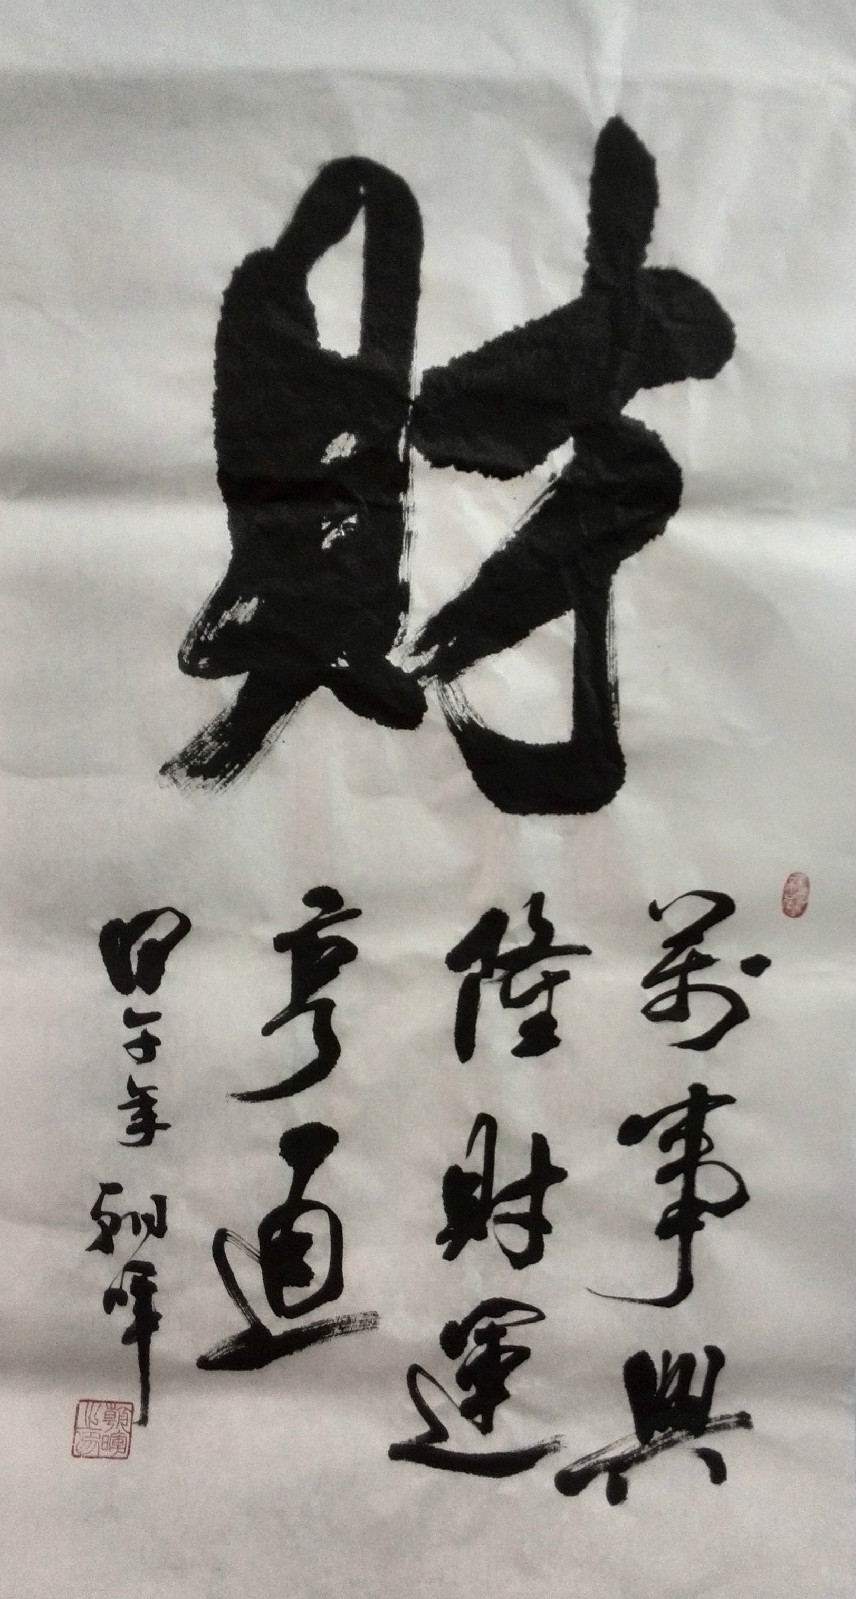 財
萬事興
隆財運
亨通
甲午年 朝暉